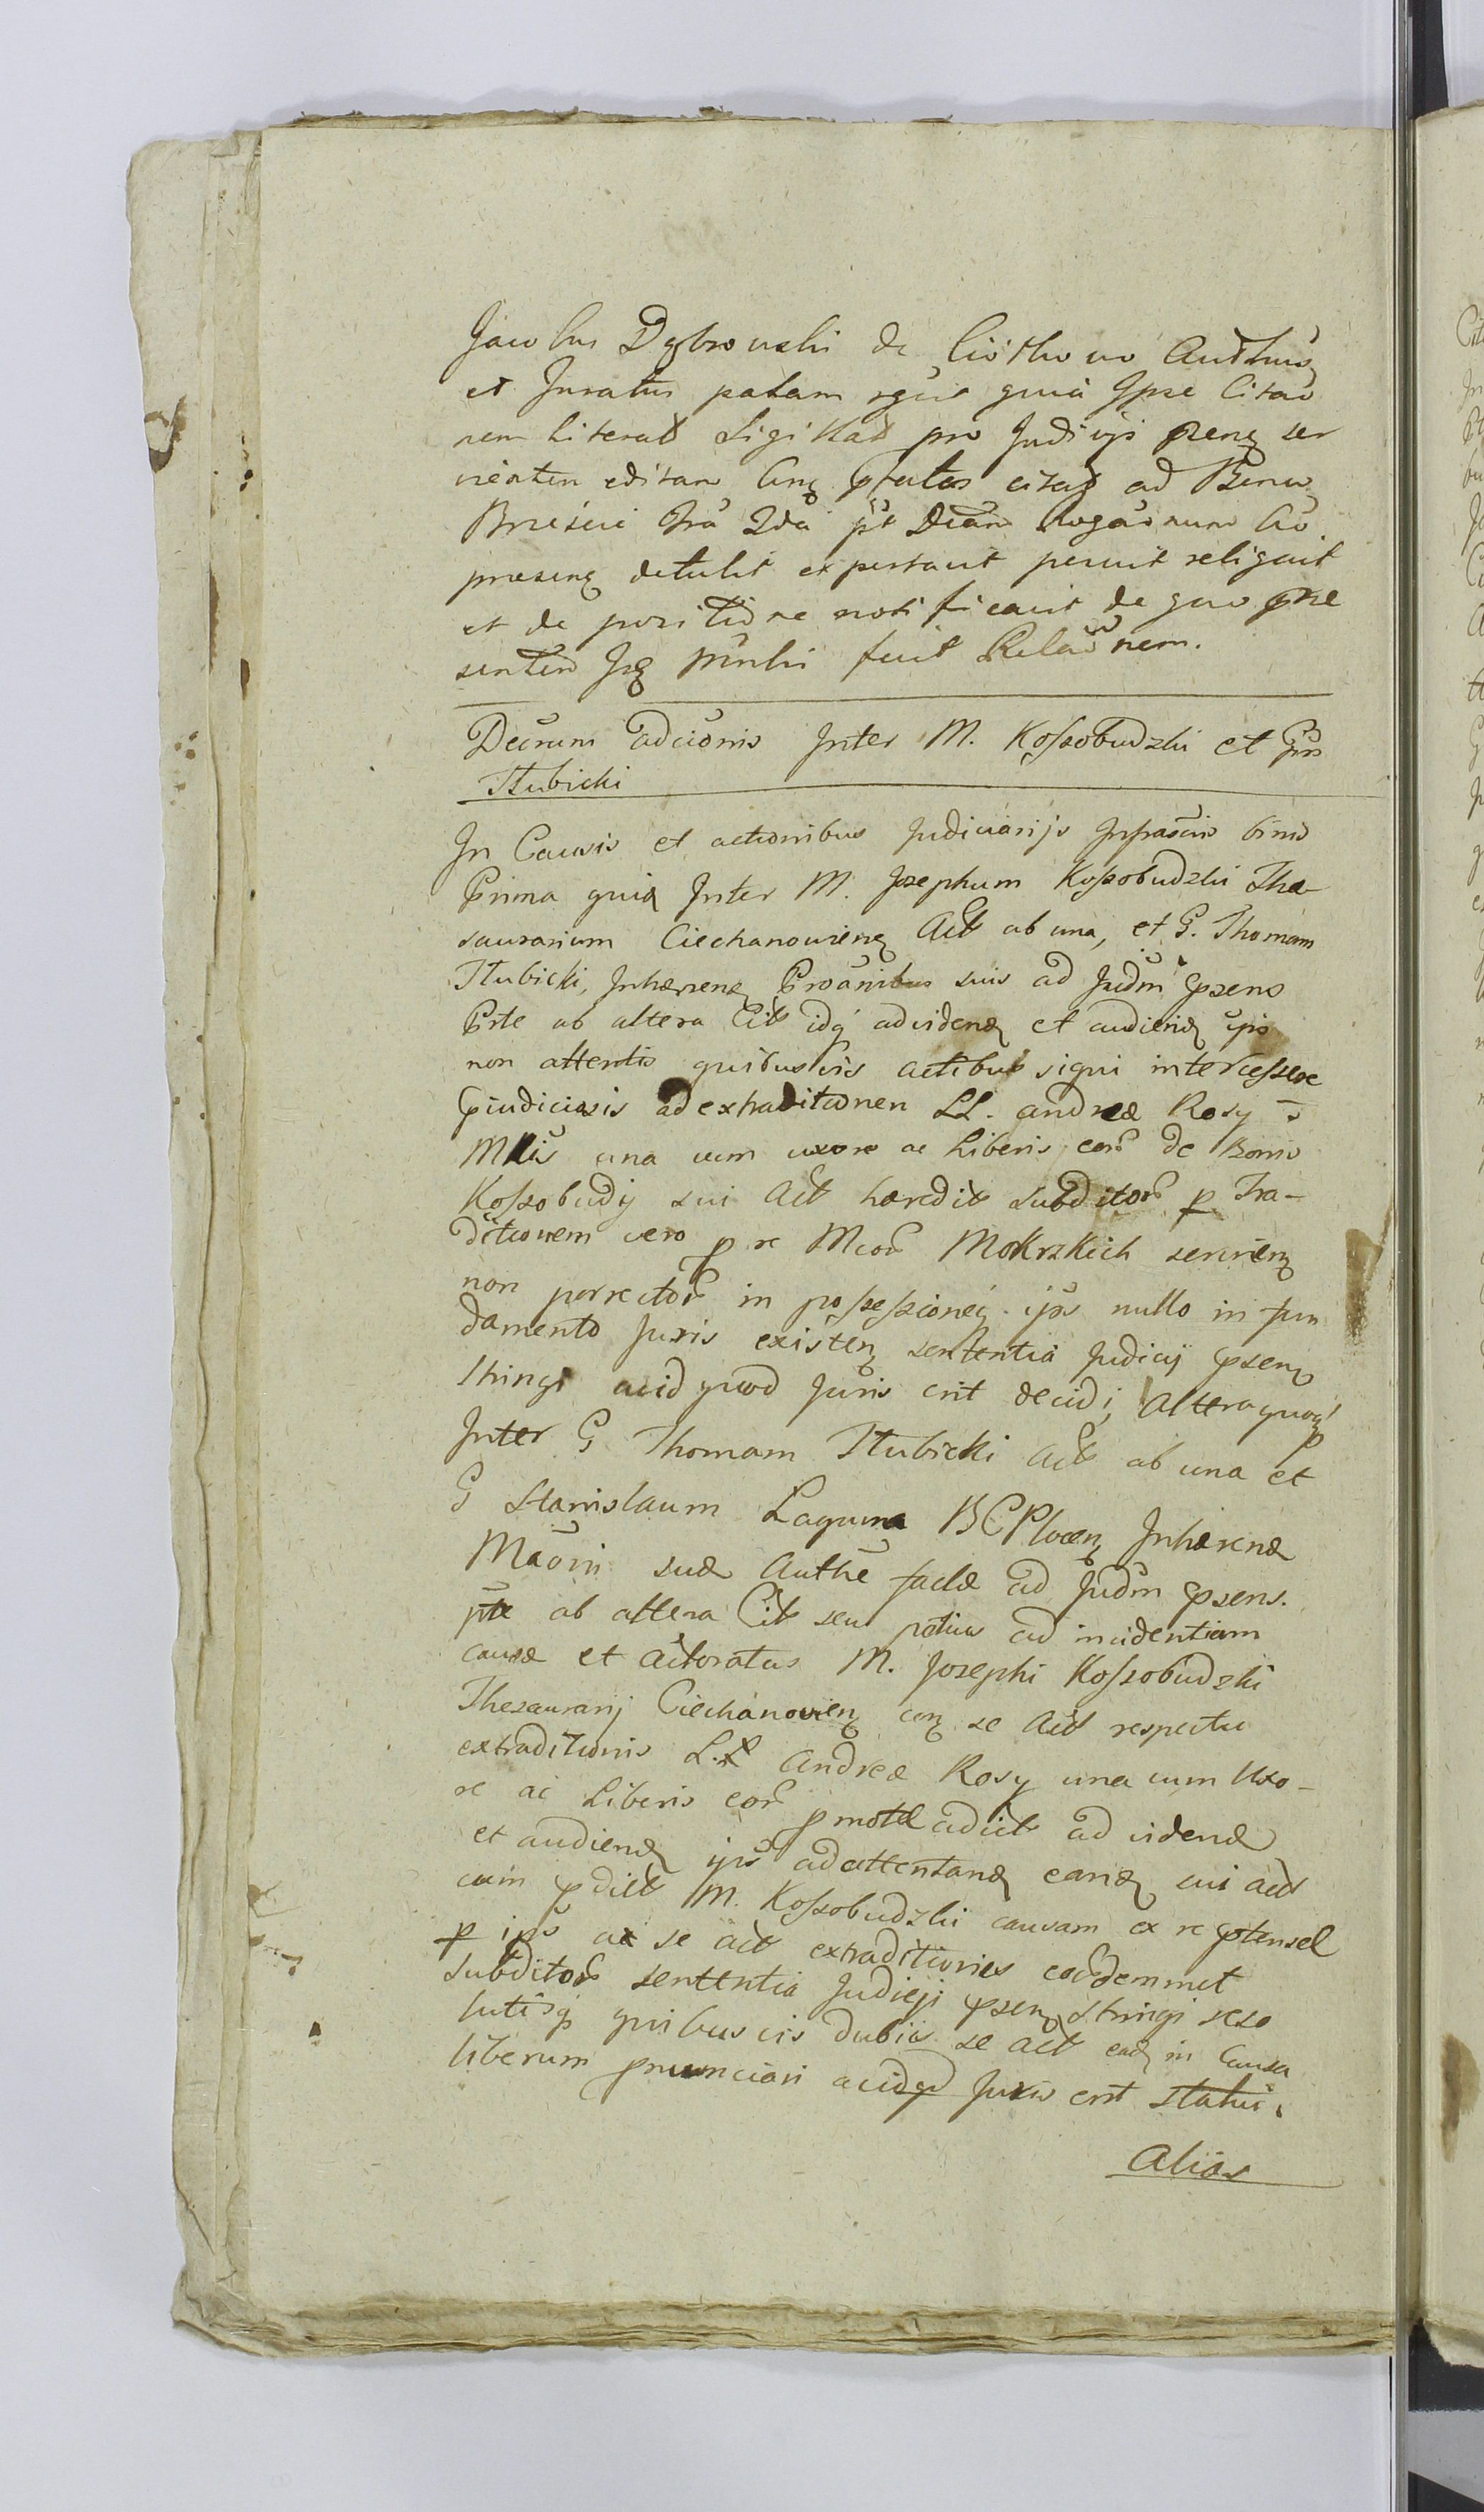 Jacobus Dąbrowski de Ciothowo Authus
et Juratus palam rgvit quia Ipse Citao
nem Literat Sigillat pro Judicijs psenę ser
vientem editam Cnę pfatos citat ad Bona
Brzeście Fra 2da pt Dcam Rogaonum Ao
praesenę detulit exportavit posuit religavit
et de positione notificavit de quo pre
sentem Jrę mnli fecit Relaonem.
Decrum adcionis Inter M. Kossobudzki et Grs
Tłubicki
In Causis et actionibus Judiciarijs Infrascris binis
Prima quia Inter M. Josephum Kossobudzki The-
saurarium Ciechanovienę Act ab una, et G. Thomam
Tłubicki, Inhaerenę Proanibus suis ad Judm psens
Prte ab altera Cit idq advidenę et audienę ips
non attentis quibusvis actibus siqui intercessere
pjudiciosis ad extraditionem LL. andreae Rosy
una cum uxore ac Liberis eor de Bonis
Kossobudy sui Act haeredit subditor p Tra-
ditionem vero p re Mcor Mokrzkich servienę
non porrector in possessioneę ips nullo in fun
damento Juris existenę sententia Judicij psenę
stringi acid quod Juris erit decidi, Altera quoq
Inter G Thomam Tłubicki Act ab una et
G Stanislaum Laguna BCPlocenę Inhaerenę
Maoni suae Authe factae ad Judm psens.
pte ab altera Cit seu potius ad incidentiam
causae et actoratus M. Josephi Kossobudzki
Thesaurarij Ciechanovienę conę se Act respectu
extraditionis L.L andreae Rosy una cum Uxo-
re ac Liberis eor pmotae adcit ad videnę
et audienę ips ad attentanę eanę cui act
cum pdict M. Kossobudzki causam ex re ptensae
p ips ac se act extraditionis eordemmet
subditor sententia Judicji psenę stringi reso
lutisq quibusvis dubiis se act eadę in Causa
liberum pnunciari acidqd Juris erit statui.
Alias